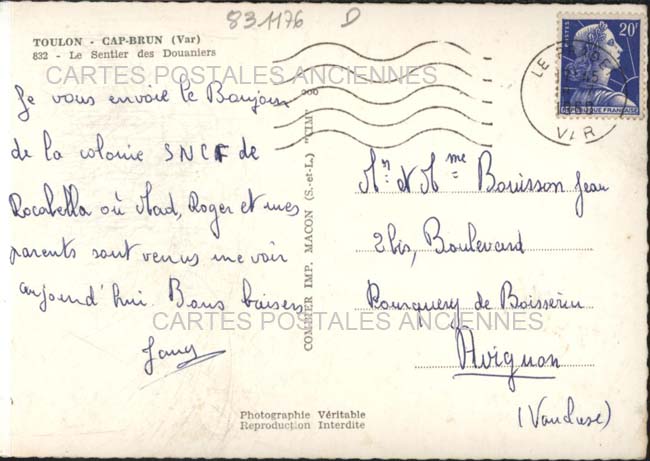 831176 D
TOULON - CAP-BRUN (Var)
832 - Le Sentier des Douaniers
CARTES POSTALES ANCIENNES
Je vous envoie le Bonjour
de la colonie SNCF de
Rocabella où Mad, Roger et mes
parents sont venus me voir
aujourd'hui. Bons baisers
COMBIER IMP. MACON (S.-et-L.) "CIM"
20F
POSTES
REPUBLIQUE FRANÇAISE
VAR
Mr et Mme Bouisson Jean
2 bis, Boulevard
de
CARTES POSTALES ANCIENNES
Avignon
(Vaucluse)
Photographie Véritable
Reproduction Interdite